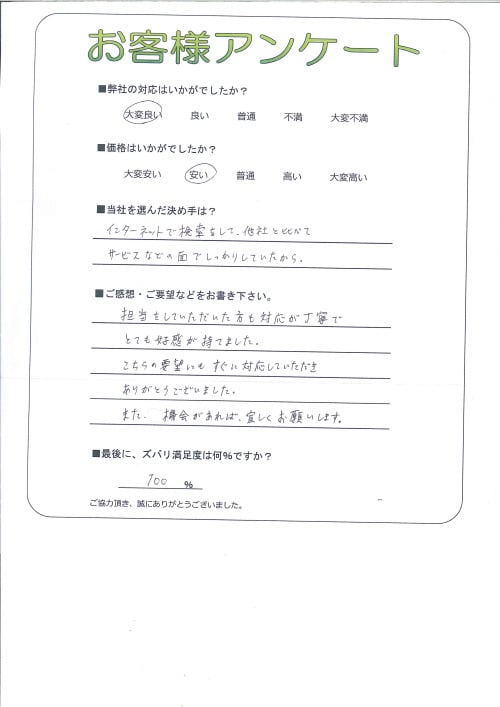 お客様アンケート
■弊社の対応はいかがでしたか？
大変良い 良い 普通 不満 大変不満
■価格はいかがでしたか？
大変安い 安い 普通 高い 大変高い
■当社を選んだ決め手は？
インターネットで検索をして、他社と比べて
サービスなどの面でしっかりしていたから。
■ご感想・ご要望などをお書き下さい。
担当をしていただいた方も対応が丁寧で
とても好感が持てました。
こちらの要望にもすぐに対応していただき
ありがとうございました。
また、機会があれば、宜しくお願いします。
■最後に、ズバリ満足度は何％ですか？
100 ％
ご協力頂き、誠にありがとうございました。